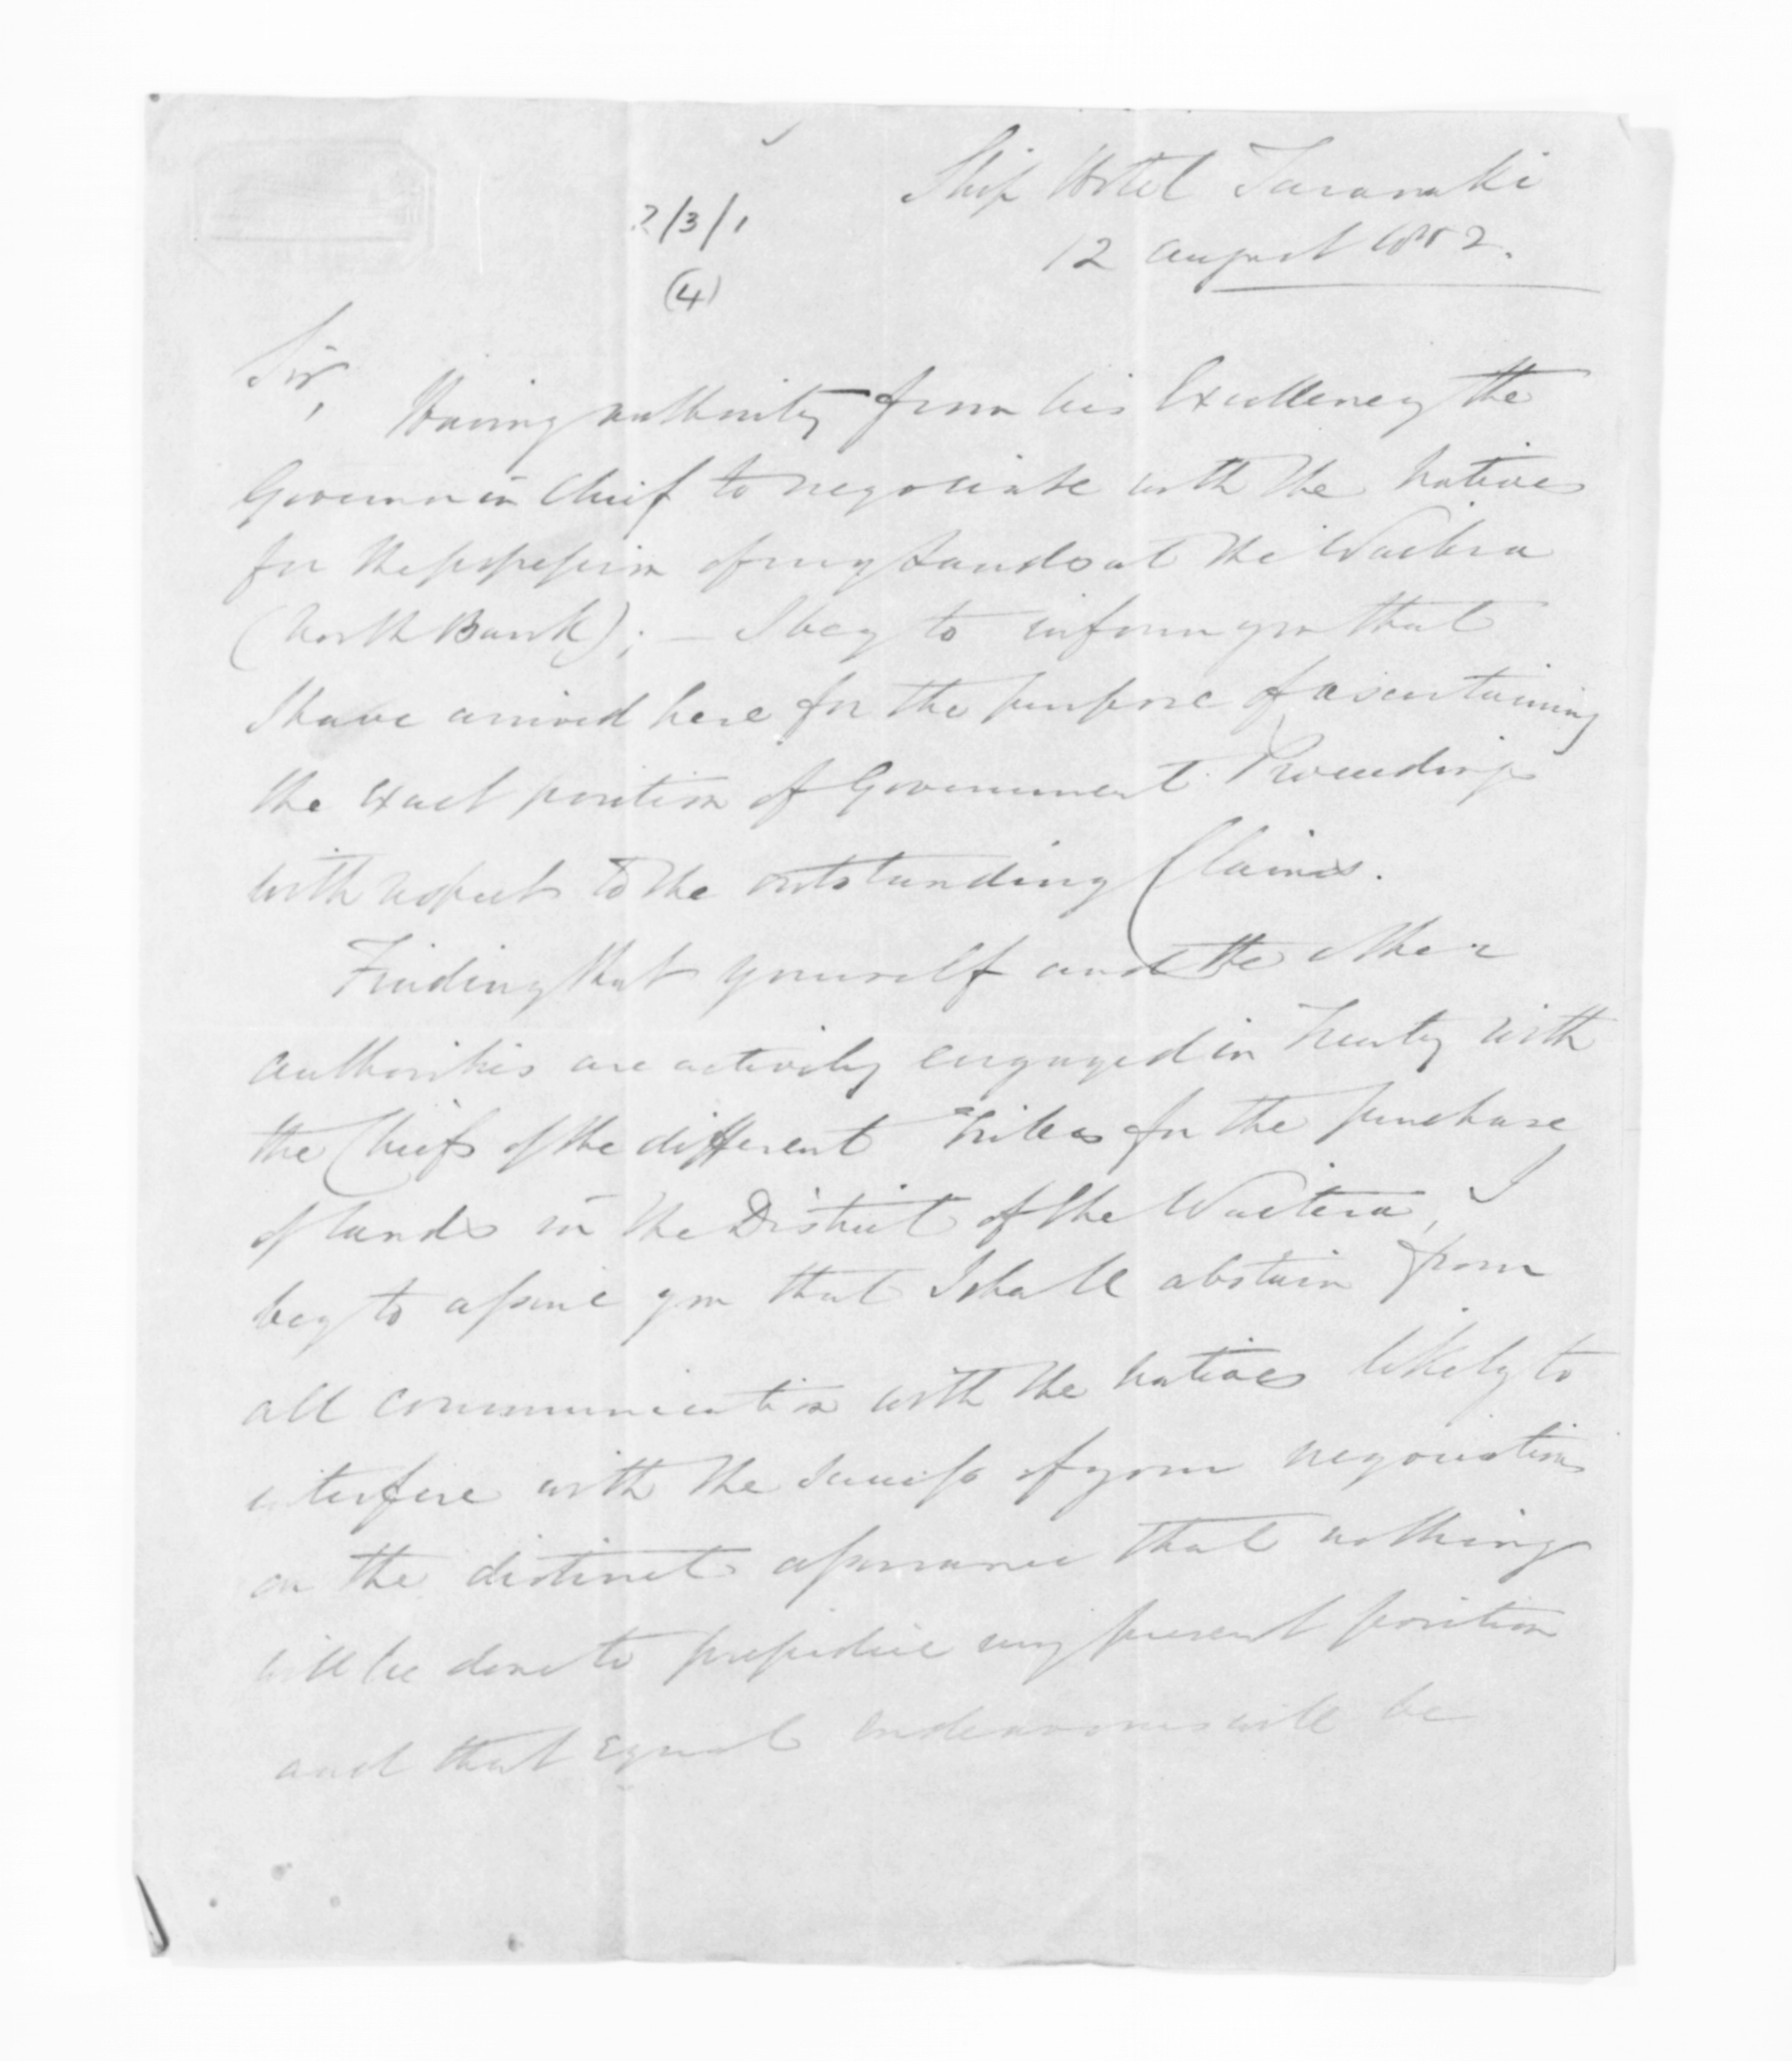 Ship Hotel Taranaki
12 August 1852.
2/3/1
(4)
Sir,
Having authority from his Excellency the
Governor in Chief to negociate with the Natives
for the possession of my Lands at the Waitera
(North Bank); - I beg to inform you that
I have arrived here for the purpose of ascertaining
the exact position of Government Proceedings
with respect to the outstanding Claims.
Finding that yourself and the other
authorities are actively engaged in Treaty with
the Chiefs of the different Tribes for the purchase
of lands in the District of the Waitera, I
beg to assure you that I shall abstain from
all communication with the natives likely to
interfere with the success of your negociations
on the distinct assurance that nothing
will be done to prejudice my present position
and that equal endeavours will be